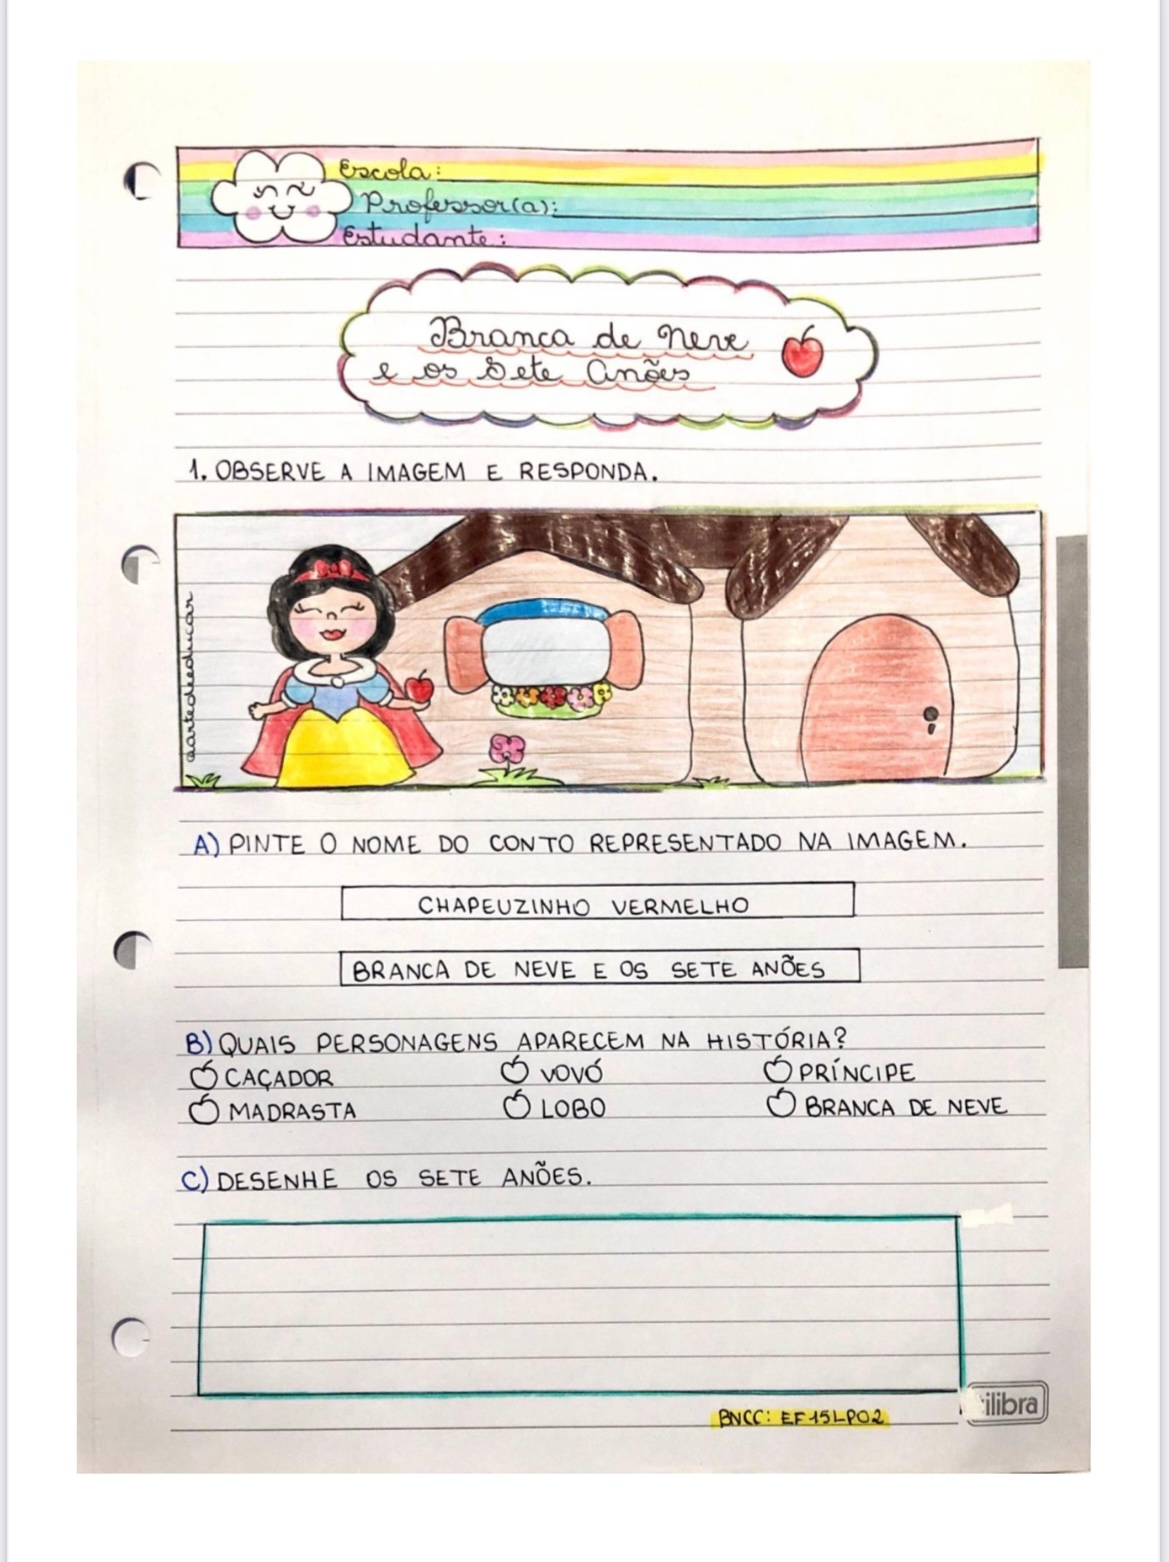 Escola:
Professor(a):
Estudante:
Branca de Neve
e os Sete Anões
1. OBSERVE A IMAGEM E RESPONDA.
@artedeeducar
A) PINTE O NOME DO CONTO REPRESENTADO NA IMAGEM.
CHAPEUZINHO VERMELHO
BRANCA DE NEVE E OS SETE ANÕES
B) QUAIS PERSONAGENS APARECEM NA HISTÓRIA?
CAÇADOR VOVÓ PRÍNCIPE
MADRASTA LOBO BRANCA DE NEVE
C) DESENHE OS SETE ANÕES.
BNCC: EF15LP02
tilibra